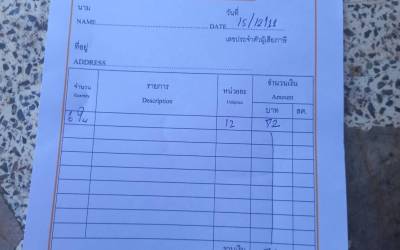 นาม วันที่ 15/12/
NAME DATE
เลขประจำตัวผู้เสียภาษี
ที่อยู่
ADDRESS
จำนวน รายการ หน่วยละ จำนวนเงิน
Quantity Description Unitprice Amount
บาท สต.
6 12 72
รวมเงิน